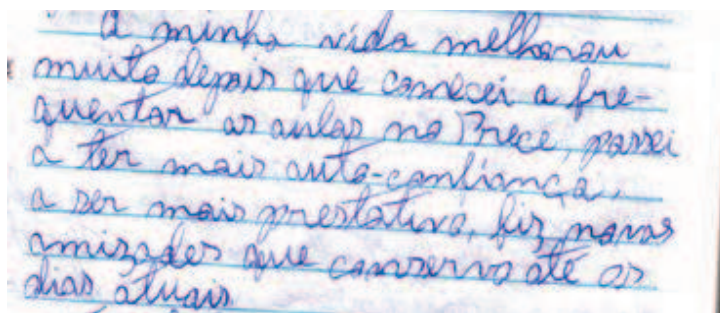 A minha vida melhorou
muito depois que comecei a fre-
quentar as aulas no Prece, passei
a ter mais auto-confiança,
a ser mais prestativo, fiz novas
amizades que conservo até os
dias atuais